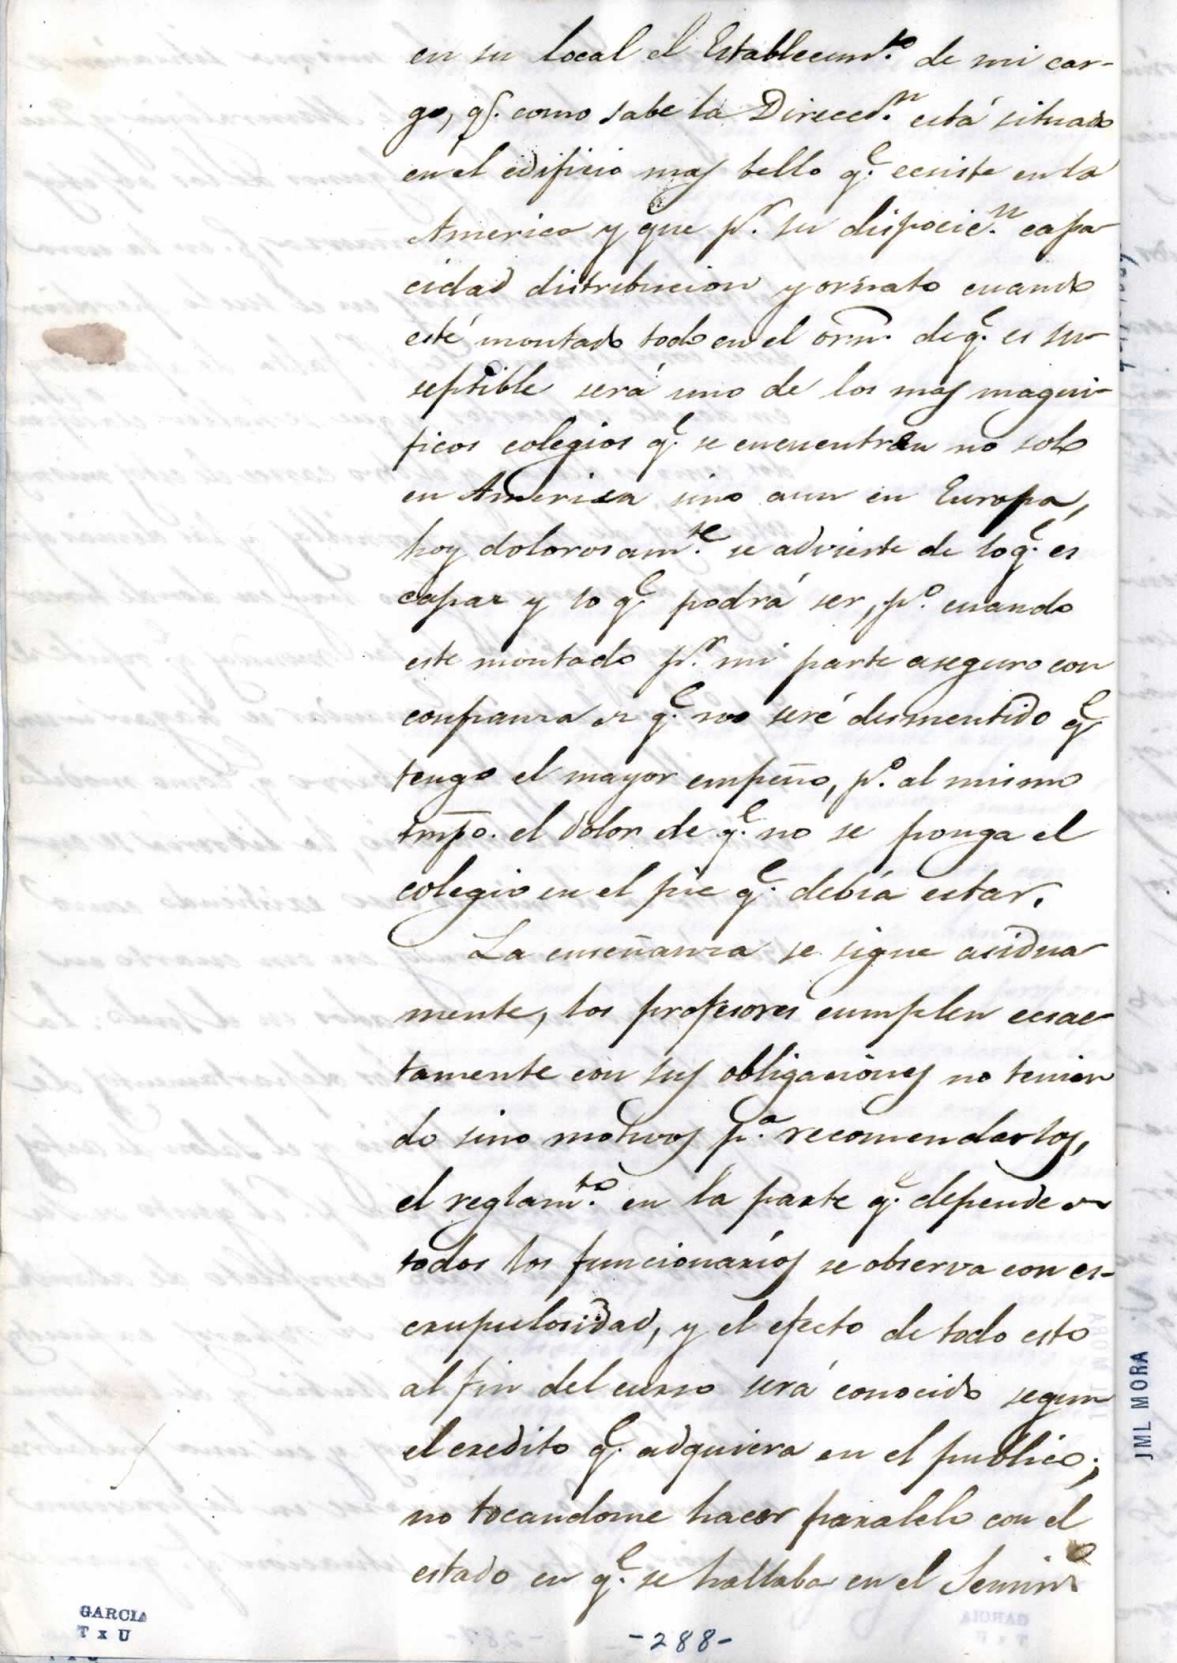 en su local el Establecim.to de mi car-
go, q.e como sabe la Direcc.n está situado
en el edificio mas bello q.e ecsiste en la
America y que p.r su disposic.n capa
cidad distribucion y ornato cuando
esté montado todo en el orn. de q.e es su-
septible será uno de los mas magni-
ficos colegios q.e se encuentren no solo
en America sino aun en Europa,
hoy dolorosam.te se advierte de lo q.e es
capaz y lo q.e podrá ser, p.o cuando
este montado p.r mi parte aseguro con
confianza de q.e no seré desmentido q.e
tengo el mayor empeño, p.o al mismo
tmpo. el dolor de q.e no se ponga el
colegio en el pie q.e debía estar.
La enseñanza se sigue asidua
mente, los profesores cumplen ecsac-
tamente con sus obligaciones no tenien
do sino motivos p.a recomendarlos,
el reglam.to en la parte q.e depende de
todos los funcionarios se observa con es-
crupulosidad, y el efecto de todo esto
al fin del curso será conocido segun
el credito q.e adquiera en el publico;
no tocandome hacer paralelo con el
estado en q.e se hallaba en el Semin.o
GARCIA
T x U
-288-
JML MORA